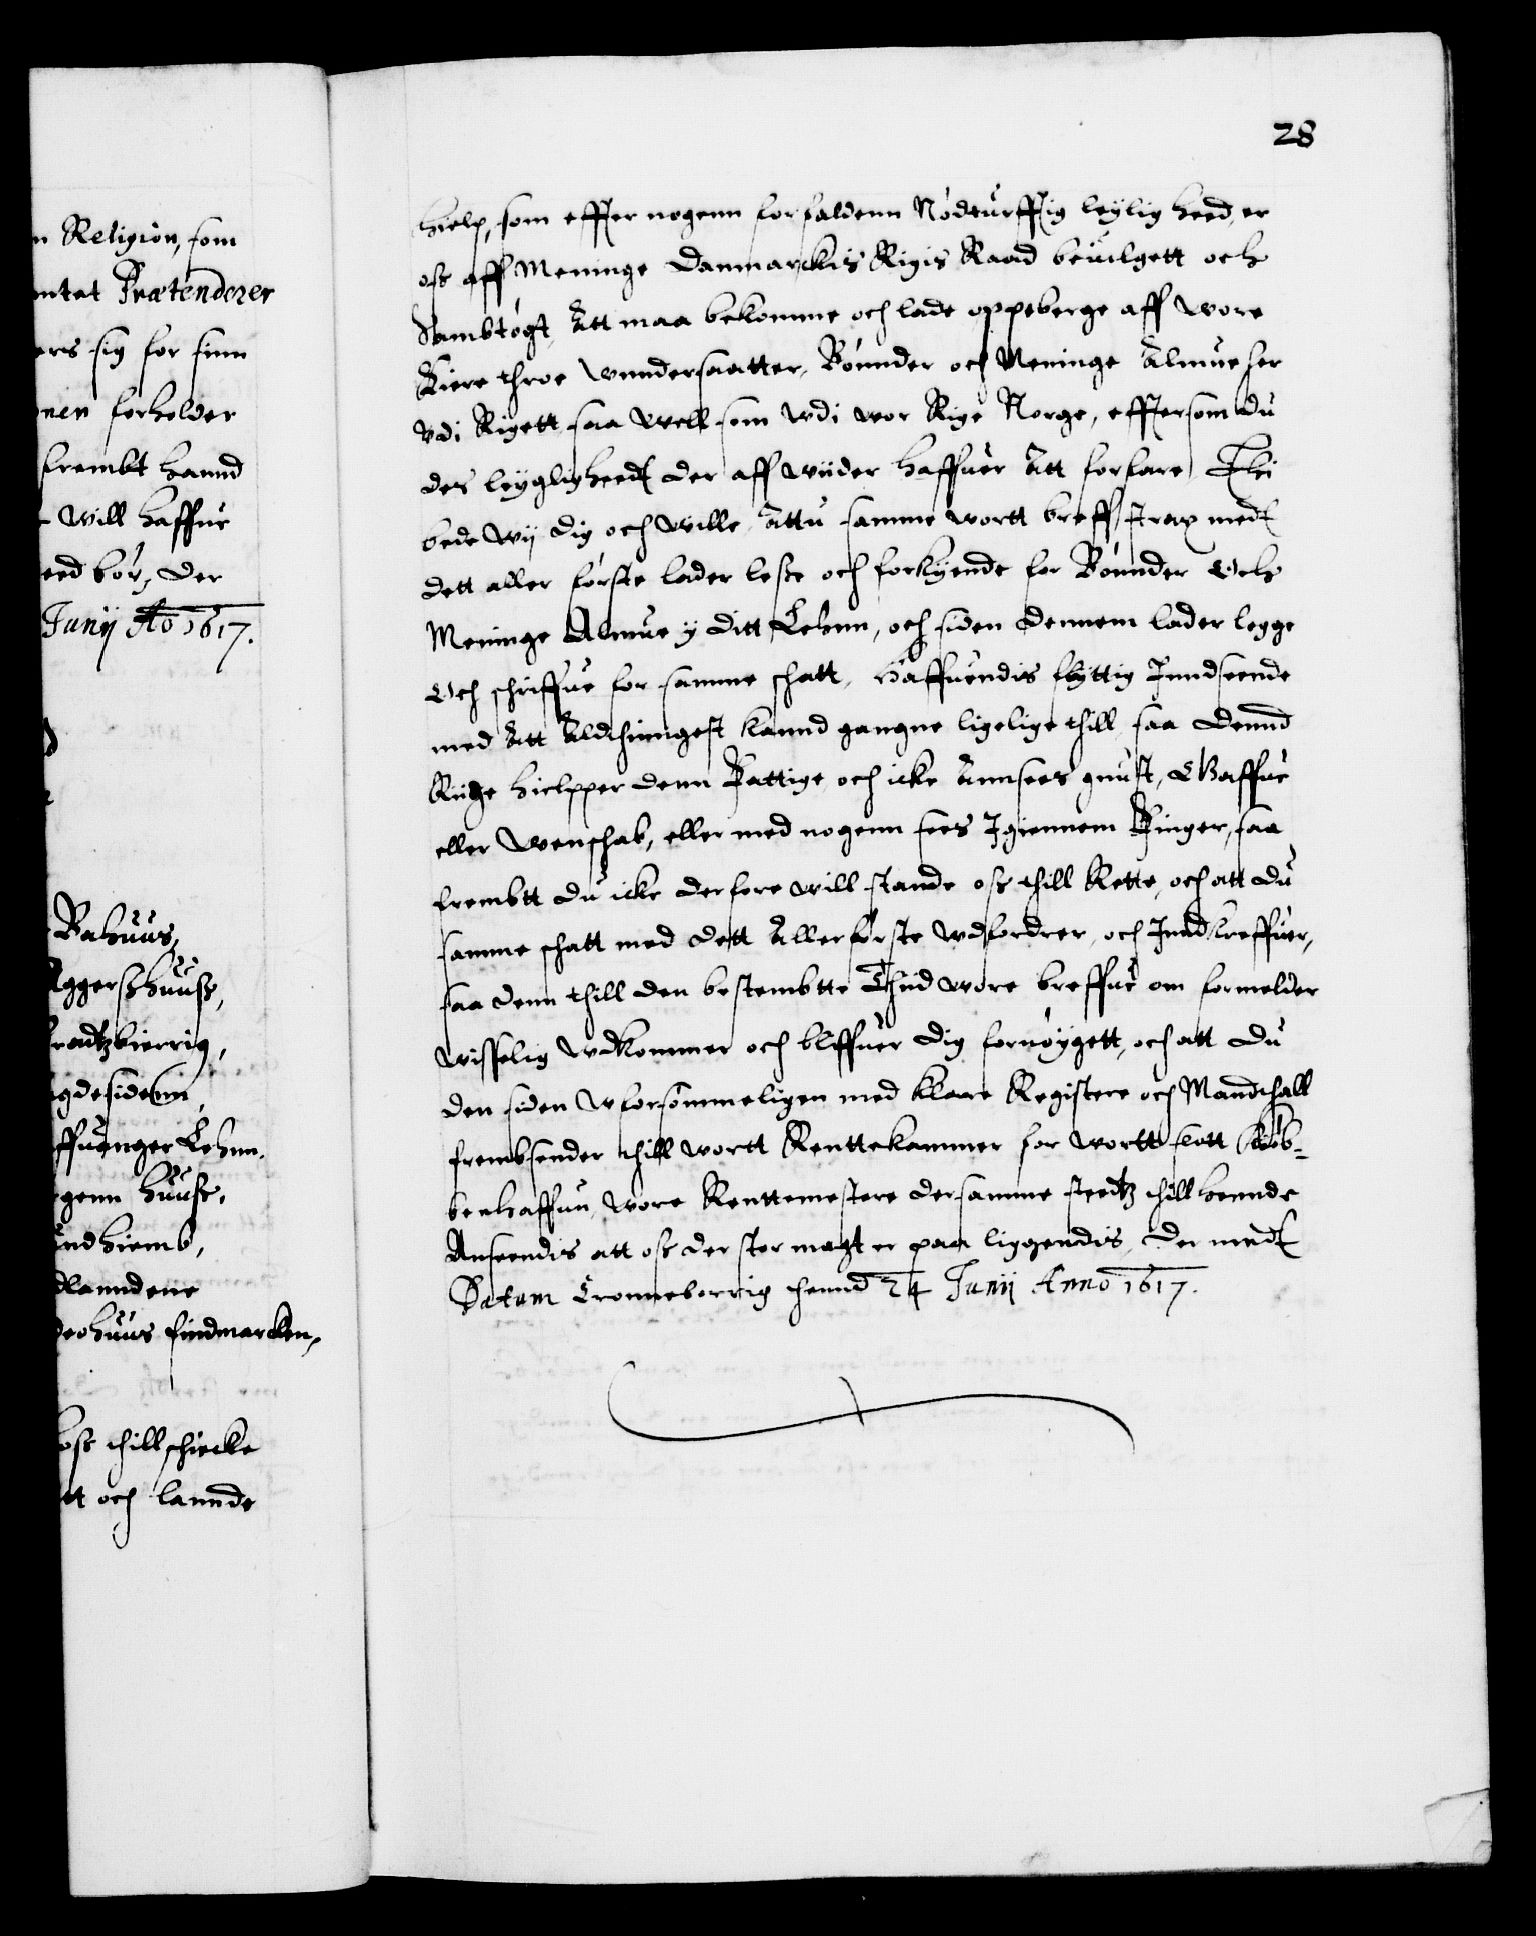 n Religion, som
ntet Prætenderer
ris sig for sinn
nen forholder
frembt hannd
will haffue
eed bör, der
Junij Ao 1617.
Bahuus,
Aggerszhuusz,
radtzbierrig,
gdesidenn,
ffuanger Lehnn,
genn huusz,
undhiemb,
dlanndene
deohuus findmarcken,
osz thill schicke
tt och lannde
28
hielp, som effter nogenn forfaldenn Nödturfftig leylig heed, er
osz aff Meninge Danmarckis Rigis Raad beuilgett och
Sambtögt, Att maa bekomme och lade oppeberge aff wore
Kiere throe wnndersaatter, Bönnder och Meninge Almue her
Vdi Rigett saa well som wdi wor Rige Norge, efftersom du
des leyglig heedt der aff wiider haffuer Att forfare, Thi
bede wij dig och wille, Attu samme wortt breff strax medt
dett aller förste lader lesze och forkynde for Bönnder Och
Meninge Almue y ditt Lehnn, och siden dennem lader legge
Och schriffue for samme schatt, Haffuendis flyttig Inndseende
med Att Aldthinngest kannd gangne ligelige thill, saa dennd
Riige hielpper denn Fattige och icke Annsees gunst, Gaffue
eller wenschab, eller med nogenn sees Igiennem Finger, saa
frembtt du icke derfore will stande osz thill Rette, och att du
samme schatt med dett Allerförste wdfordrer, och Inndkreffuer,
saa denn thill den bestembtte Thiid wore breffue om formelder
wisselig wdkommer och bliffuer dig fornöygett, och att du
den siden wforsömmeligen med klare Registere och Mandthall
frembsender thill wortt Renttekammer for wortt slott Köb-
benhaffnn, wore Renttemestere dersamme stedtz thill hennde
Anseendis att osz der stor magt er paa liggendis, der medt
Datum Cronneborrig thennd 24 Junij Anno 1617.